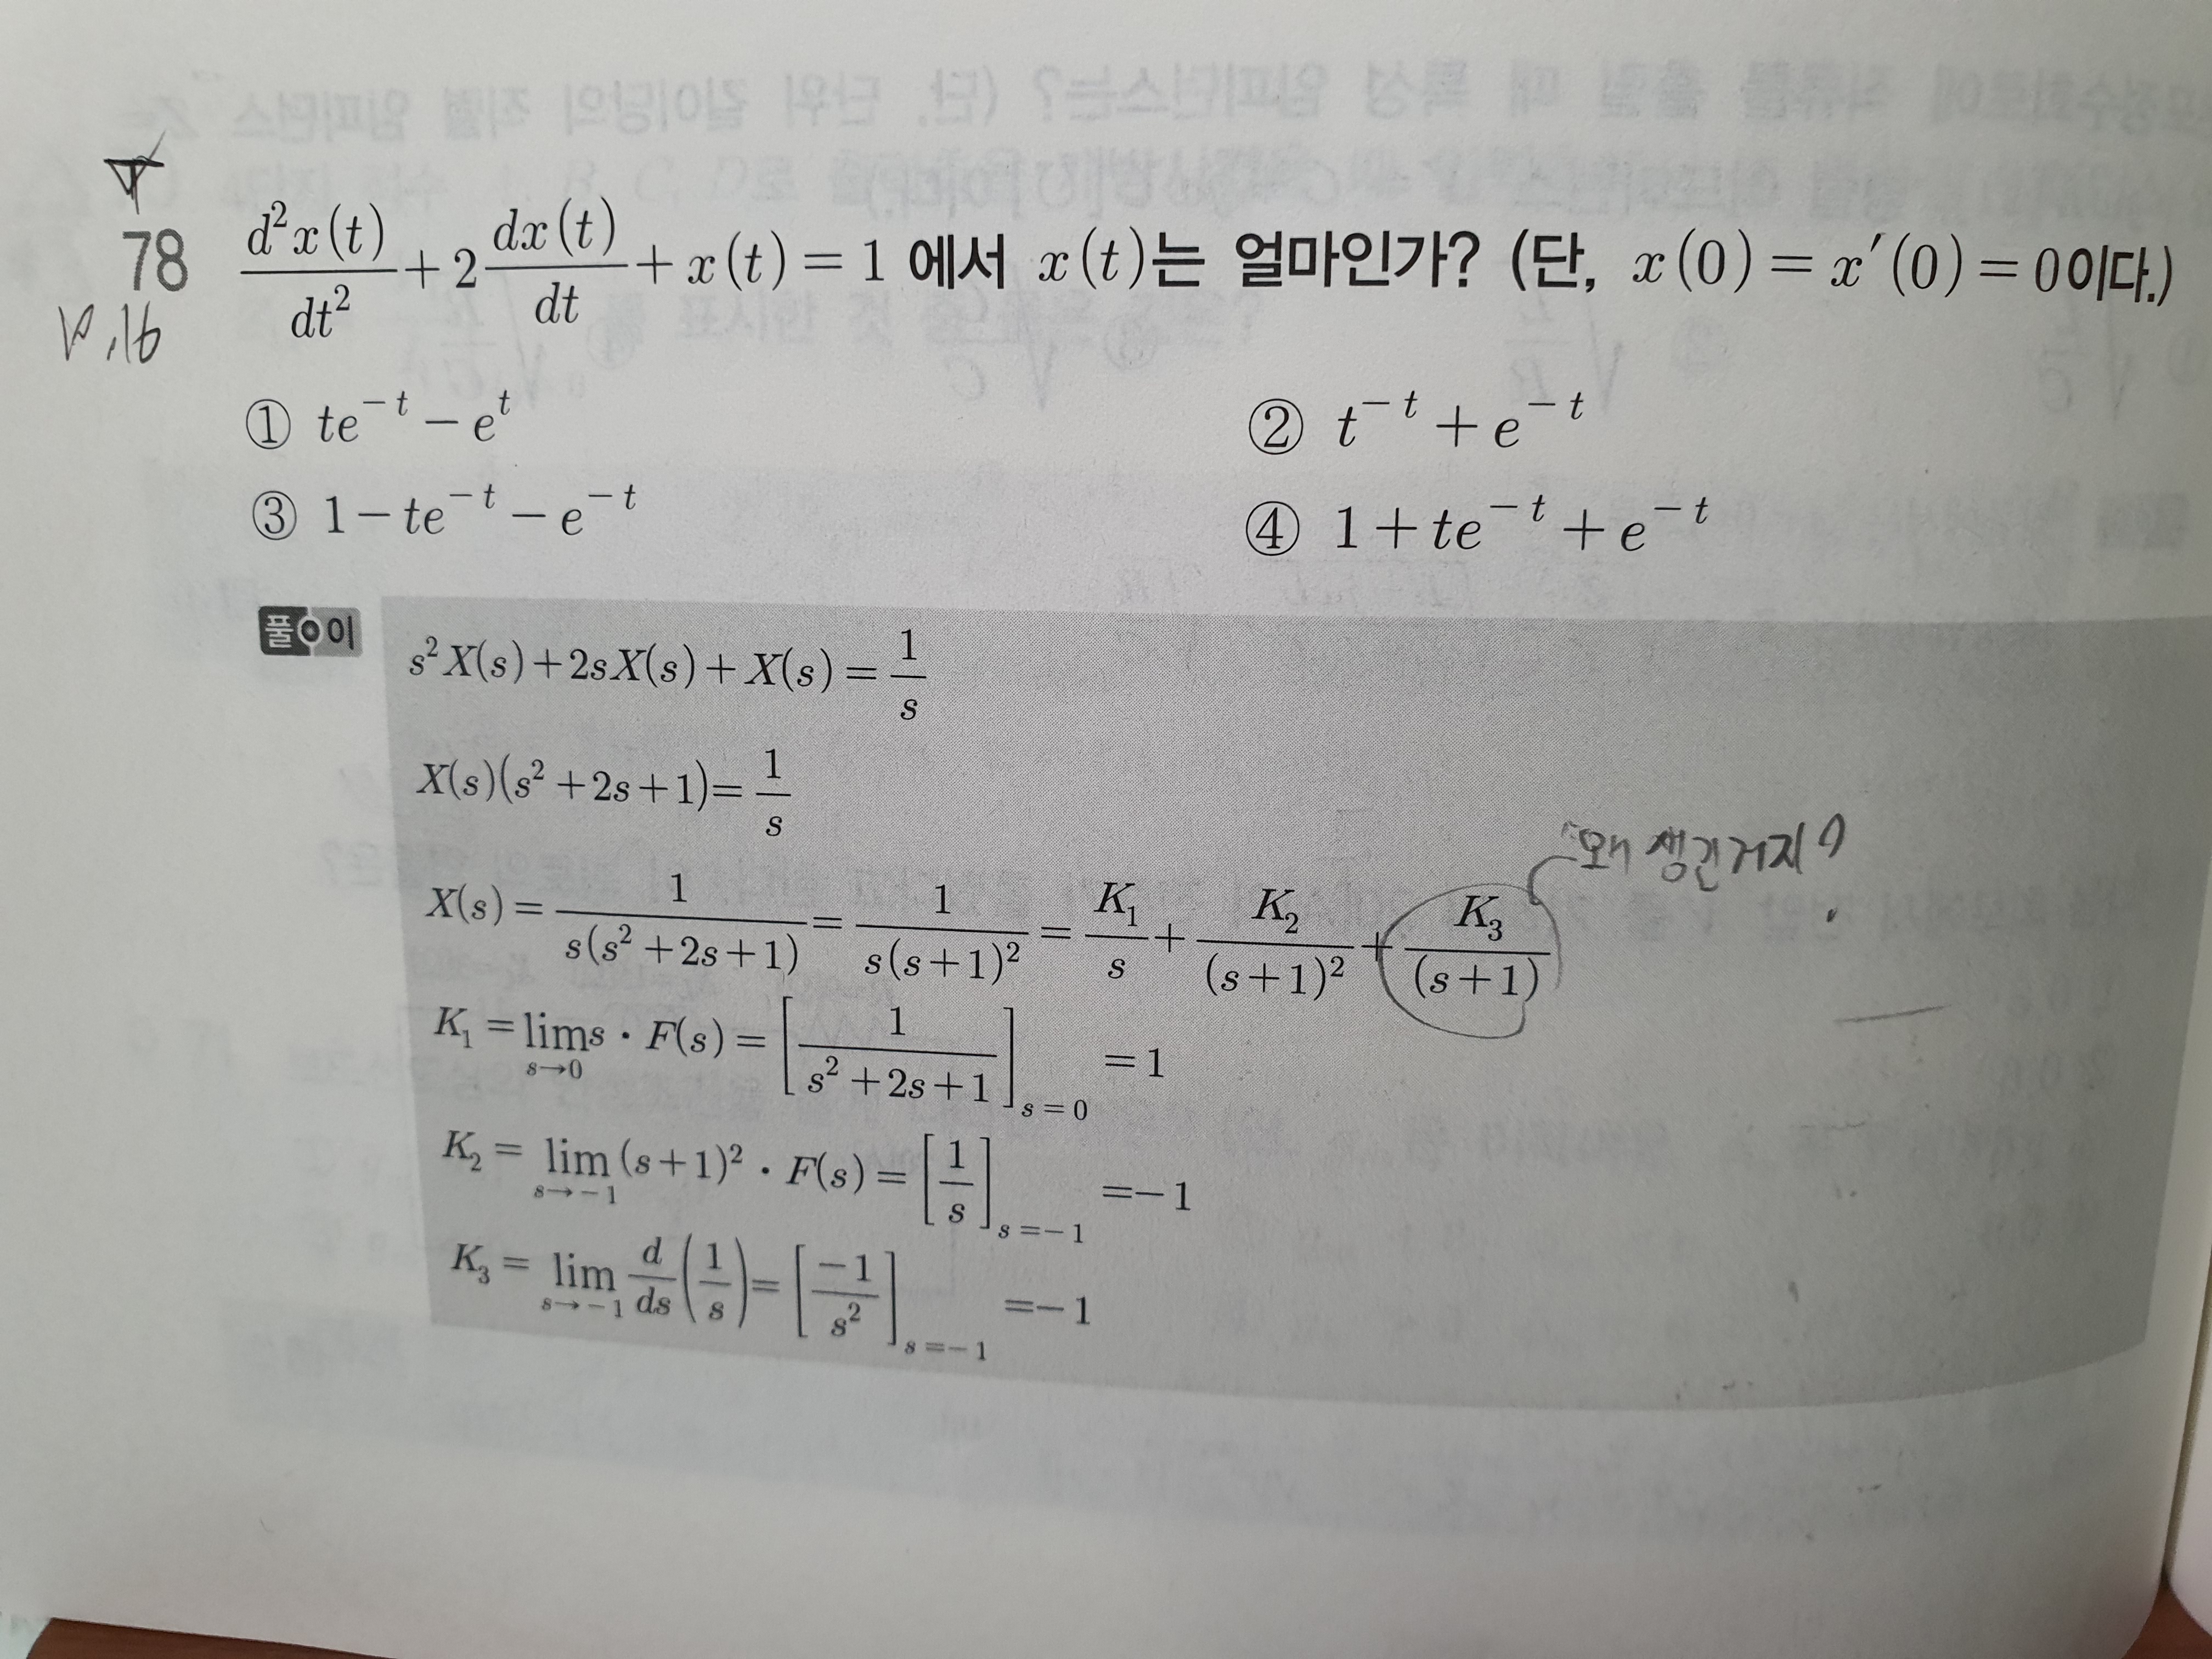 78 d²x(t)/dt² + 2 dx(t)/dt + x(t) = 1 에서 x(t)는 얼마인가? (단, x(0) = x′(0) = 0이다.)
① te^{-t} - e^{t}
② t^{-t} + e^{-t}
③ 1 - te^{-t} - e^{-t}
④ 1 + te^{-t} + e^{-t}
풀이
s²X(s) + 2sX(s) + X(s) = 1/s
X(s)(s² + 2s + 1) = 1/s
왜 생긴거지?
X(s) = 1/(s(s² + 2s + 1)) = 1/(s(s+1)²) = K₁/s + K₂/(s+1)² + K₃/(s+1)
K₁ = lim_{s→0} s · F(s) = [1/(s² + 2s + 1)]_{s=0} = 1
K₂ = lim_{s→-1} (s+1)² · F(s) = [1/s]_{s=-1} = -1
K₃ = lim_{s→-1} d/ds (1/s) = [-1/s²]_{s=-1} = -1